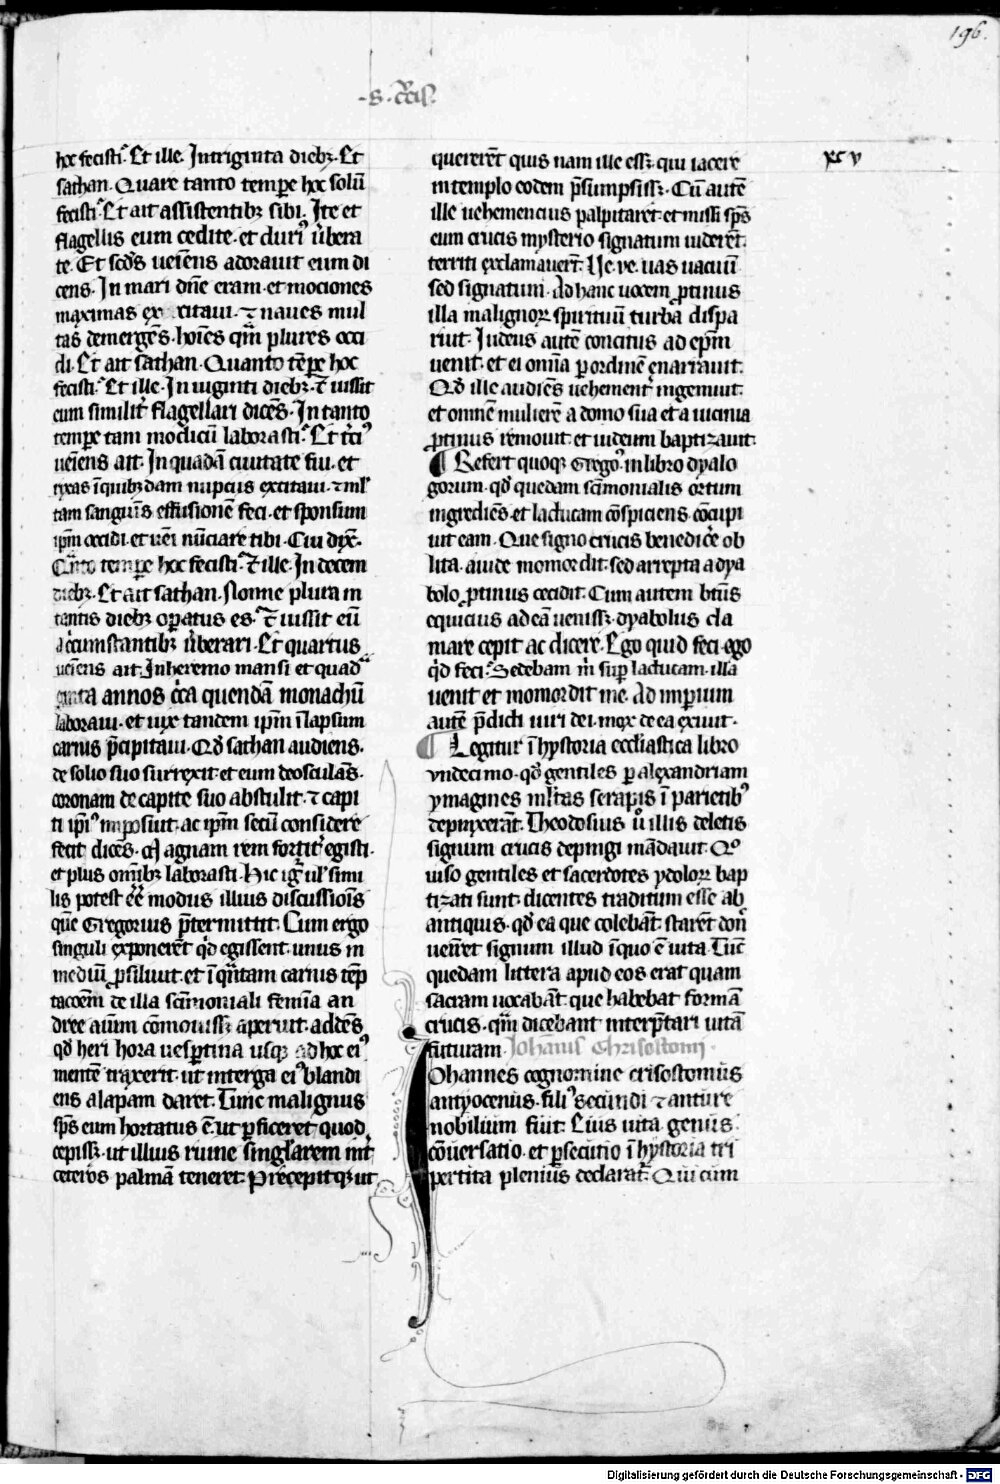 196.
.S. Crucis.
hoc fecisti. Et ille. In triginta dieb3. Et
sathan. Quare tanto tempe hoc solū
fecisti. Et ait assistentib3 sibi. Ite et
flagellis eum cedite. et duri9 ūbera
te. Et scd's ueīens adorauit eum di
cens. In mari dn̄e eram. et mociones
maximas excitaui. ⁊ naues mul
tas demergēs. hoīes qm̄ plures occi
di. Et ait sathan. Quanto tēpe hoc
fecisti. Et ille. In uiginti dieb3. ⁊ iussit
eum similit̄ flagellari dicēs. In tanto
tempe tam modicū laborasti. Et t̄ci9
ueīens ait. In quadā ciuitate fui. et
rixas ī quib3dam nupciis excitaui. ⁊ ml'
tam sanguīs effusionē feci. et sponsum
ip̄m occidi. et ueī nūciare tibi. Cui dix̄.
Quāto tempe hoc fecisti. ⁊ ille. In decem
dieb3. Et ait sathan. Nonne plura in
tantis dieb3 opatus es. ⁊ iussit eū
a c̄cumstantib3 ūberari. Et quartus
ueīens ait. In heremo mansi et quad
ginta annos c̄ca quendā monachū
laboraui. et uix tandem ip̄m ī lapsum
carnis p̄cipitaui. Qd̄ sathan audiens.
de solio suo surrexit. et eum deosculās.
coronam de capite suo abstulit. ⁊ capi
ti ip̄i9 imposuit. ac ip̄m secū considere
fecit dicēs. magnam rem fortit̄ egisti.
et plus omib3 laborasti. Hic igr̄ ul' simi
lis potest ēe modus illius discussiōis
quē Gregorius p̄termittit. Cum ergo
singuli exponerēt qd̄ egissent. unus in
mediū psiliuit. et ī qntam carnis tēp
tacōem de illa scīmoniali femīa an
dree aīum cōmouiss3 aperuit. addēs
qd̄ heri hora uespertina usq3 ad hoc ei9
mentē traxerit. ut in terga ei9 blandi
ens alapam daret. Tunc malignus
sp̄s eum hortatus ē. ut pficeret quod
cepiss3. ut illius ruine singlarem int̄
ceteros palmā teneret. Precepitq3 ut
quererēt quis nam ille ess3. qui iacere
in templo eodem p̄sumpsiss3. Cū autē
ille uehemencius palpitaret. et missi sp̄s
eum crucis mysterio signatum uiderēt.
territi exclamauerūt. Ve. ve. uas uacuū
sed signatum. Ad hanc uocem ptinus
illa malignor̄ spirituū turba dispa
riit. Iudeus autē concitus ad ep̄m
uenit. et ei omīa p ordinē enarrauit.
Qd̄ ille audiēs uehement̄ ingemuit.
et omnē mulierē a domo sua et a uicinia
ptinus remouit. et iudeum baptizauit.
¶ Refert quoq3 Grego9 in libro dyalo
gorum. qd̄ quedam scīmonialis ortum
ingrediēs. et lactucam cōspiciens. cōcupi
uit eam. Que signo crucis benedic̄e ob
lita. auide momordit. sed arrepta a dya
bolo ptinus cecidit. Cum autem bt̄us
equicius ad eā ueniss3. dyabolus cla
mare cepit ac dicere. Ego quid feci. ego
qd̄ feci. Sedebam m̄ sup lactucam. illa
uenit et momordit me. Ad imperium
autē p̄dicti uiri dei. mox de ea exiuit.
¶ Legitur ī hystoria eccliastica libro
vndecimo. qd̄ gentiles p alexandriam
ymagines ml'tas serapis ī parietib9
depinxerāt. Theodosius ū illis deletis
signum crucis depingi mādauit. Qo
uiso gentiles et sacerdotes ydolor̄ bap
tizati sunt. dicentes traditum esse ab
antiquis. qd̄ ea que colebāt. starēt don̄
ueniret signum illud ī quo ē uita. Tūc
quedam littera apud eos erat quam
sacram uocabāt. que habebat formā
crucis. qm̄ dicebant interp̄tari uitā
futuram. Iohannis Chrisostomi.
Iohannes cognomine crisostomus
antyocenus. fili9 secundi ⁊ anture
nobilium fuit. Cuius uita. genus.
cōuersatio. et psecutio ī hystoria tri
pertita plenius declarat̄. Qui cum
xcv
Digitalisierung gefördert durch die Deutsche Forschungsgemeinschaft - DFG